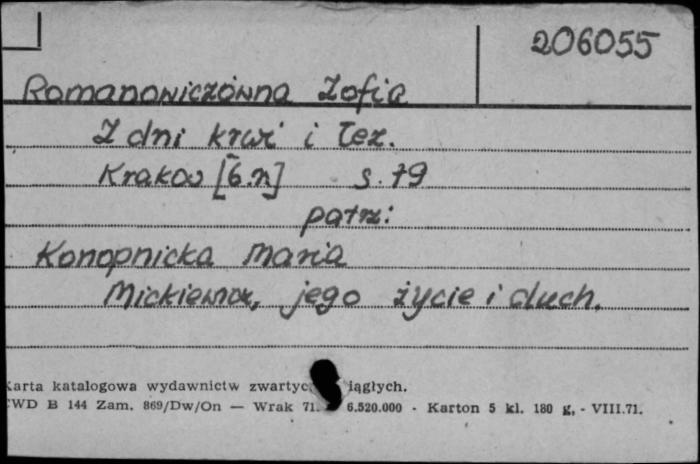 206055
Romanowiczówna Zofia
Z dni krwi i łez.
Kraków [b.r.] s. 79
patrz:
Konopnicka Maria
Mickiewicz, jego życie i duch.
Karta katalogowa wydawnictw zwartyc iągłych.
CWD B 144 Zam. 869/Dw/On — Wrak 71. 6.520.000 - Karton 5 kl. 180 g. - VIII.71.